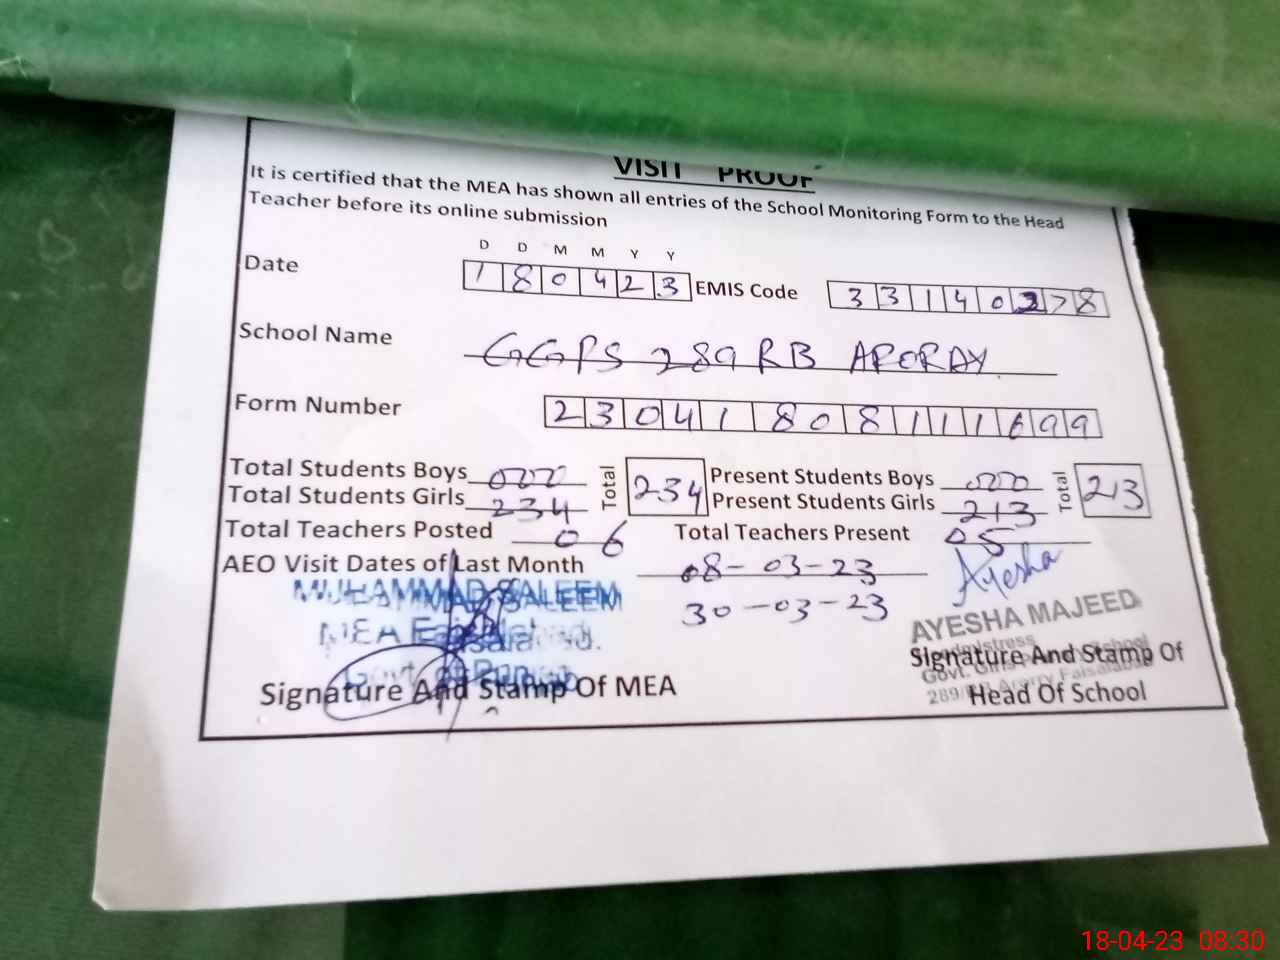 VISIT PROOF
It is certified that the MEA has shown all entries of the School Monitoring Form to the Head
Teacher before its online submission
D D M M Y Y
Date 1 8 0 4 2 3 EMIS Code 3 3 1 4 0 2 7 8
School Name GGPS 289 RB ARORAY
Form Number 2 3 0 4 1 8 0 8 1 1 1 6 9 9
Total Students Boys 000 Total 234 Present Students Boys 000 Total 213
Total Students Girls 234 Present Students Girls 213
Total Teachers Posted 06 Total Teachers Present 05
AEO Visit Dates of Last Month 08-03-23
30-03-23
Ayesha
MUHAMMAD SALEEM
MEA Faisalabad.
Govt. of Punjab
Signature And Stamp Of MEA
AYESHA MAJEED
Headmistress
Govt. Girls School
289/ Faisalabad
Signature And Stamp Of
Head Of School
18-04-23 08:30